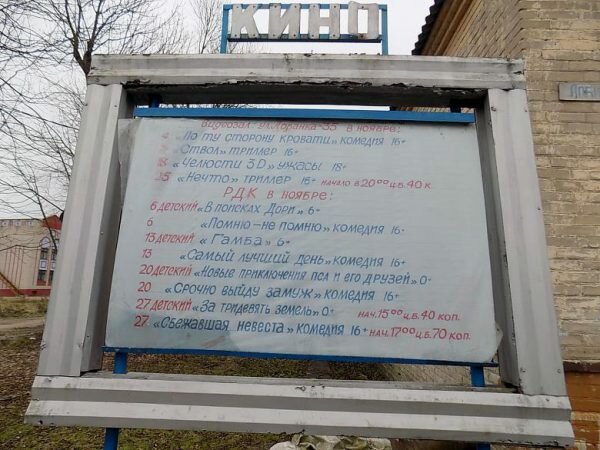 КИНО
Видеозал: ул. 35 в ноябре:
4 «По ту сторону кровати» комедия 16+
«Ствол» триллер 16+
18 «Челюсти 3D» ужасы 18+
25 «Нечто» триллер 16+ начало в 20⁰⁰ ц.б. 40 к.
РДК в ноябре:
6 детский «В поисках Дори» 6+
6 «Помню-не помню» комедия 16+
13 детский «Гамба» 6+
13 «Самый лучший день» комедия 16+
20 детский «Новые приключения пса и его друзей» 0+
20 «Срочно выйду замуж» комедия 16+
27 детский «За тридевять земель» 0+ нач. 15⁰⁰ ц.б. 40 коп.
27 «Сбежавшая невеста» комедия 16+ нач. 17⁰⁰ ц.б. 70 коп.